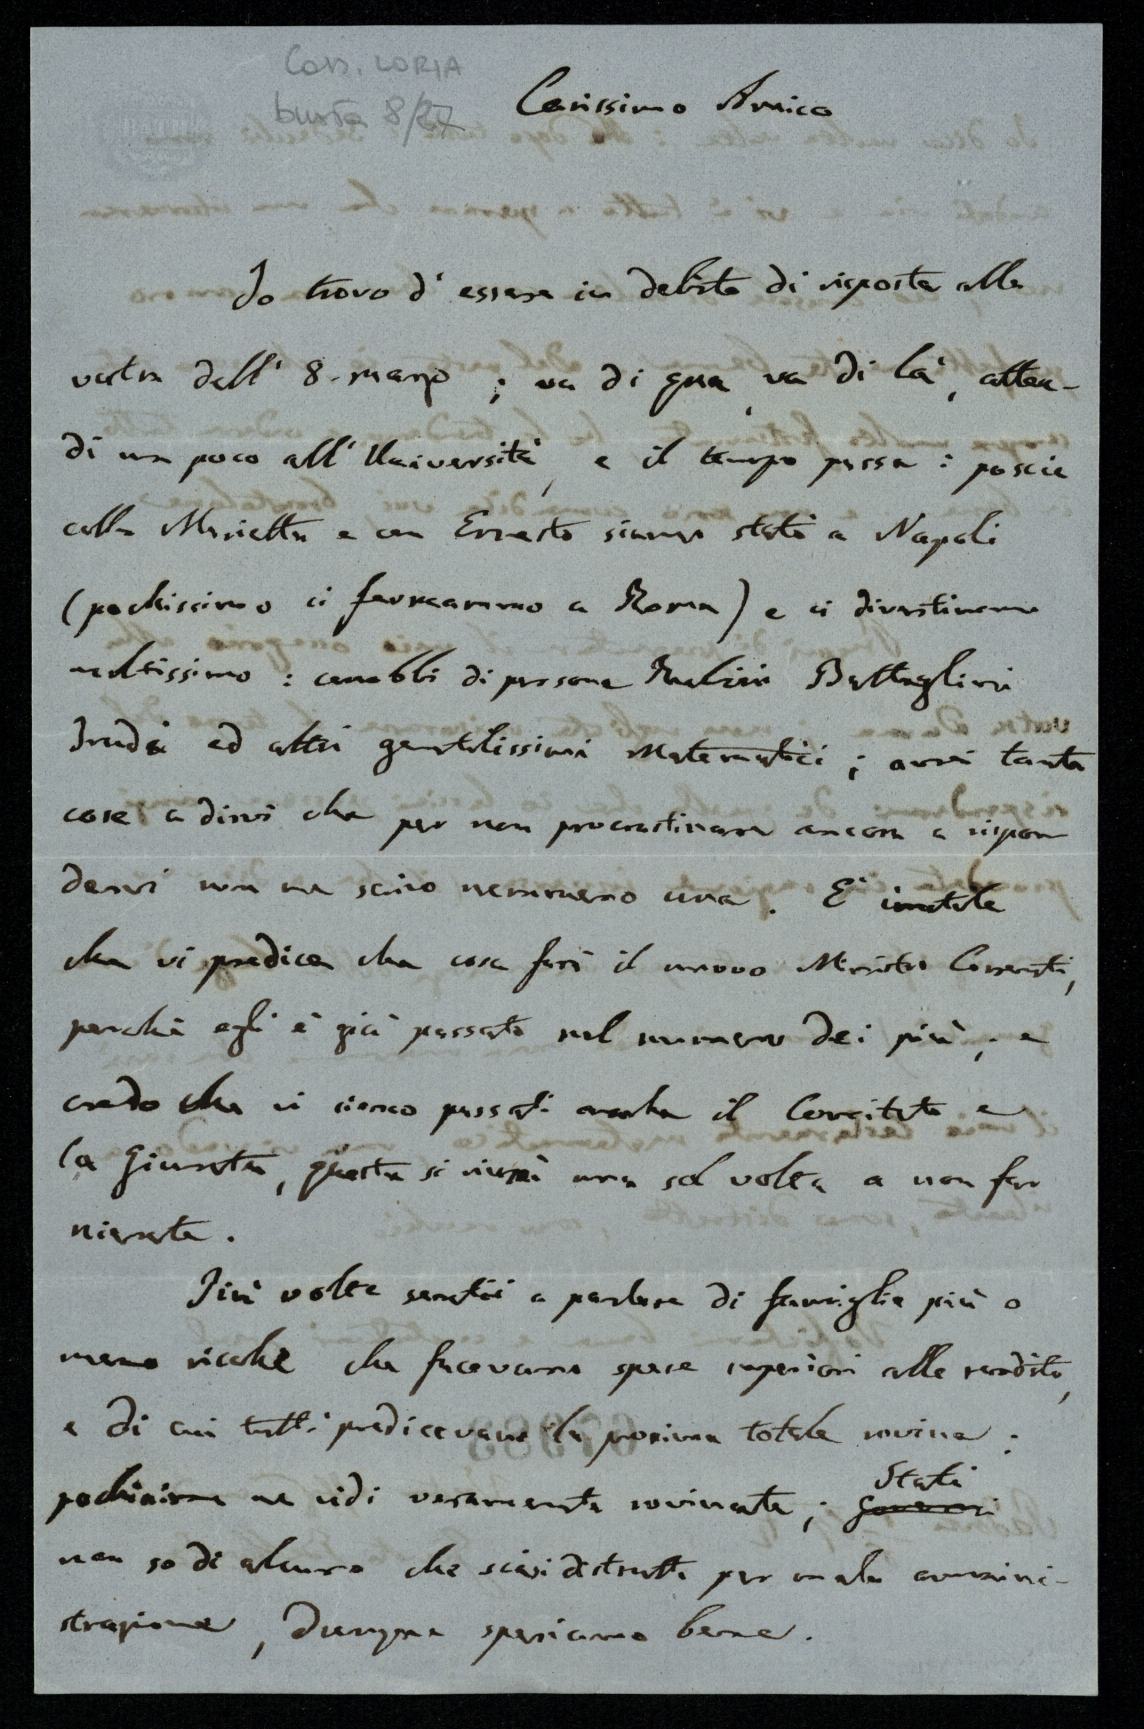 Corr. LORIA
busta 8/27
Carissimo Amico
Io trovo d'essere in debito di risposta alla
vostra dell' 8. marzo; va di qua, va di là, atten-
di un poco all'Università, e il tempo passa: poscia
colla Marietta e con Ernesto siamo stati a Napoli
(pochissimo ci fermammo a Roma) e ci divertimmo
moltissimo: conobbi di persona Rubini Battaglini
Trudi ed altri gentilissimi Matematici; avrei tante
cose a dirvi che per non procrastinare ancora a rispon
dervi non ne scrivo nemmeno una. E' inutile
che vi predica che cosa farà il nuovo Ministro Correnti,
perchè egli è già passato nel numero dei più, e
credo che vi sieno passati anche il Comitato e
la Giunta, questa si riunì una sol volta a non far
niente.
Più volte sentii a parlare di famiglie più o
meno ricche che facevano spese superiori alle rendite,
e di cui tutti predicevano la prossima totale rovina:
pochissime ne vidi veramente rovinate; Stati
Governi
non so di alcuno che siasi distrutto per mala ammini-
strazione, dunque speriamo bene.